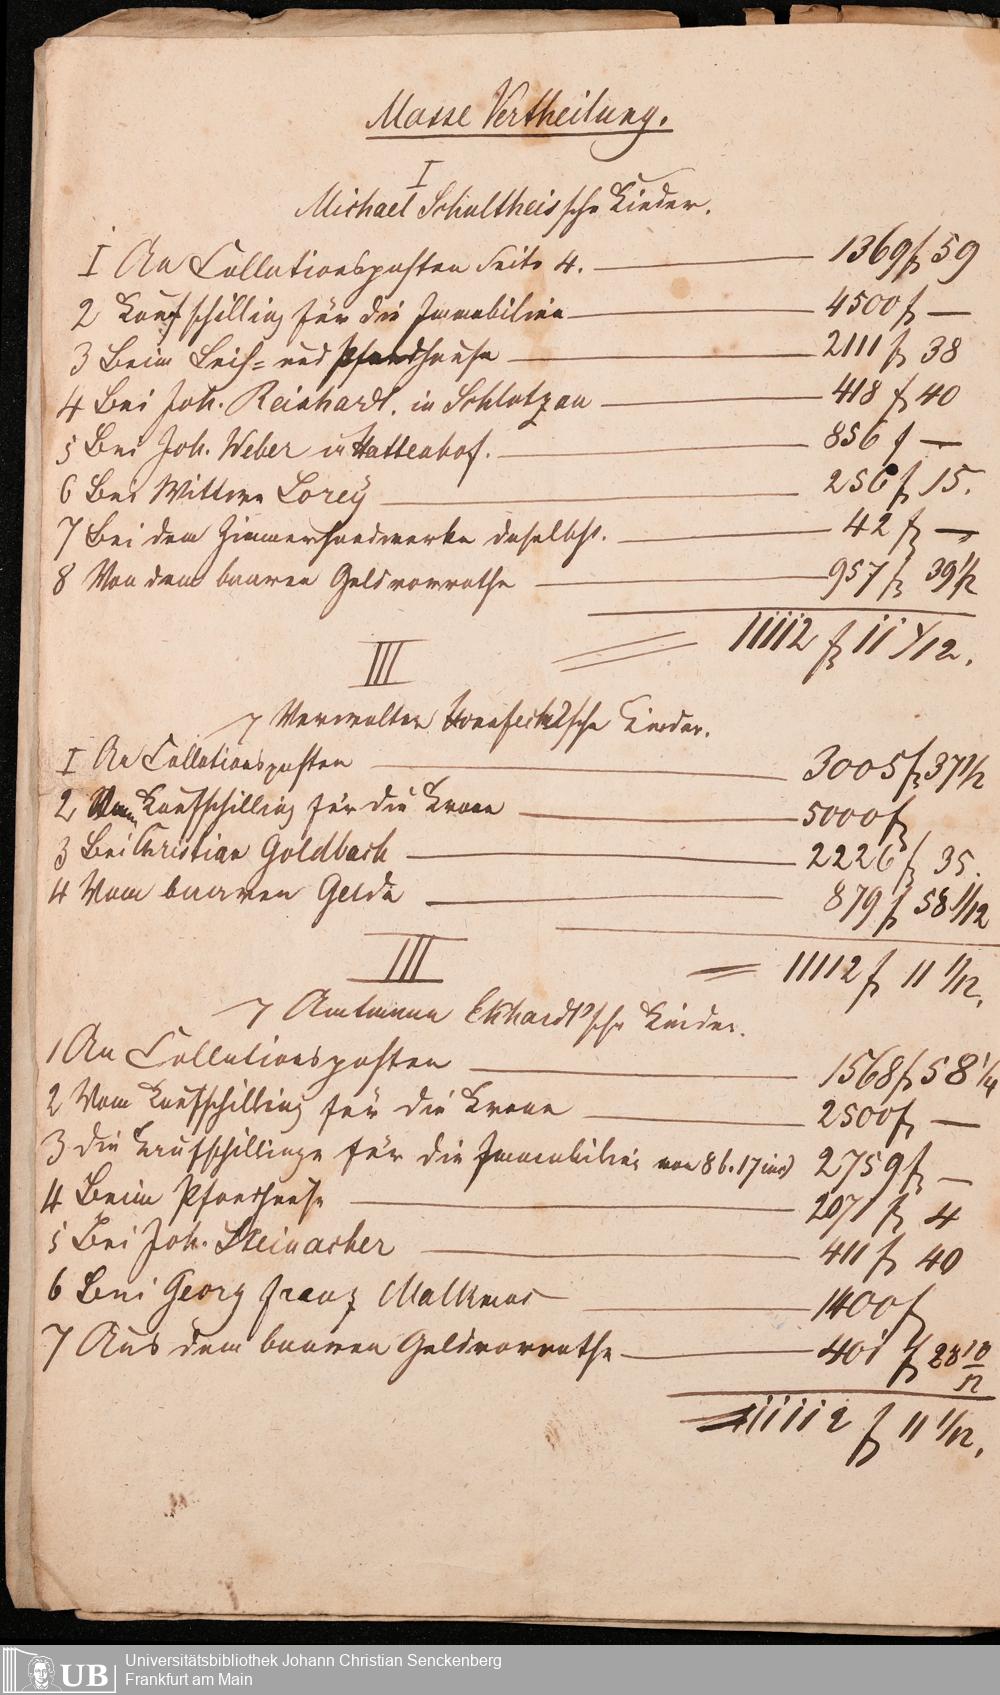 Masse Vertheilung.
I
Michael Schultheis'sche Kinder.
1 An Collationsposten Seite 4. — 1369 f 59
2 Kaufschilling für die Immobilien — 4500 f —
3 Beim Leih= und Pfandhause — 2111 f 38
4 Bei Joh. Reinhardt, in Schlotzau — 418 f 40
5 Bei Joh. Weber in Hattenhof. — 856 f —
6 Bei Wittwe Lorey — 256 f 15.
7 Bei dem Zimmerhandwerke daselbst. — 42 f —
8 Von dem baaren Geldvorrathe — 957 f 39 1/12
11112 f 11 1/12.
III
7 Verwalter sche Kinder.
1 An Collationsposten — 3005 f 37 1/2
2 Vom Kaufschilling für die Krone — 5000 f
3 Bei Christian Goldbach — 2226 f 35.
4 Vom baaren Gelde — 879 f 58 1/12
= 11112 f 11 1/12.
III
7 Amtmann Ekhardt'sche Kinder.
1 An Collationsposten — 1568 f 58 1/4
2 Vom Kaufschilling für die Krone — 2500 f —
3 die Kaufschillinge für die Immobilien von 8 b. 17 incl — 2759 f —
4 Beim Pfandhause — 2071 f 4
5 Bei Joh. Steinacher — 411 f 40
6 Bei Georg Franz Malkmus — 1400 f
7 Aus dem baaren Geldvorrathe — 401 f 28 10/12
= 11112 f 11 1/12.
UB Universitätsbibliothek Johann Christian Senckenberg
Frankfurt am Main